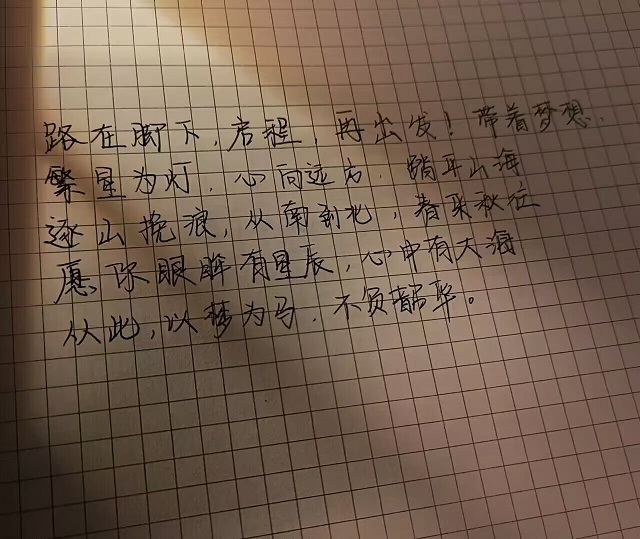 路在脚下，启程，再出发！带着梦想.
繁星为灯，心向远方，踏平山海
逐山挽浪，从南到北，春来秋往
愿你眼眸有星辰，心中有大海
从此，以梦为马，不负韶华。